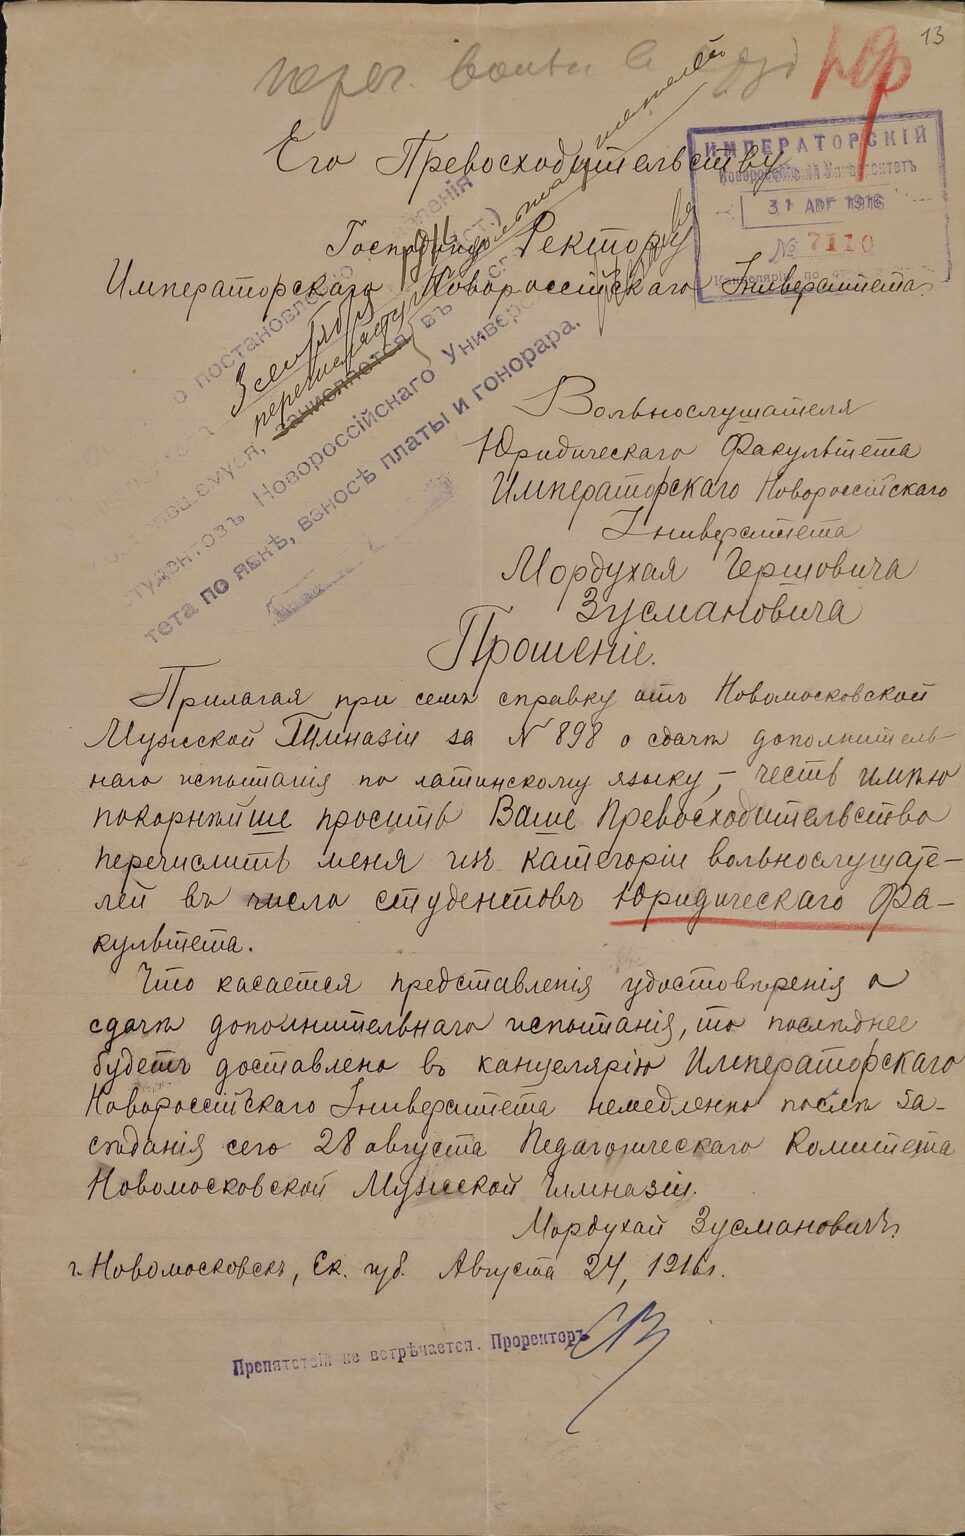 13
перег. вольн
Его Превосходительству
Господину Ректору
Императорскаго Новороссійскаго Университета.
ИМПЕРАТОРСКІЙ
Новороссійскій Университетъ
31 АВГ 1916
№ 7110
Канцелярія по
о постановленію
зачисляется въ
студентовъ Новороссійскаго Универси
тета по явкѣ, взносѣ платы и гонорара.
Вольнослушателя
Юридическаго Факультета
Императорскаго Новороссійскаго
Университета
Мордухая Гершовича
Зусмановича
Прошеніе.
Прилагая при семъ справку отъ Новомосковской
Мужской Гимназіи за № 898 о сдачѣ дополнитель-
наго испытанія по латинскому языку, – честь имѣю
покорнѣйше просить Ваше Превосходительство
перечислить меня изъ категоріи вольнослушате-
лей въ число студентовъ Юридическаго Фа-
культета.
Что касается представленія удостовѣренія о
сдачѣ дополнительнаго испытанія, то послѣднее
будетъ доставлено въ канцелярію Императорскаго
Новороссійскаго Университета немедленно послѣ за-
сѣданія сего 28 августа Педагогическаго Комитета
Новомосковской Мужской Гимназіи.
Мордухай Зусмановичъ.
г. Новомосковскъ, Ек. губ. Августа 24, 1916 г.
Препятствій не встрѣчается. Проректоръ